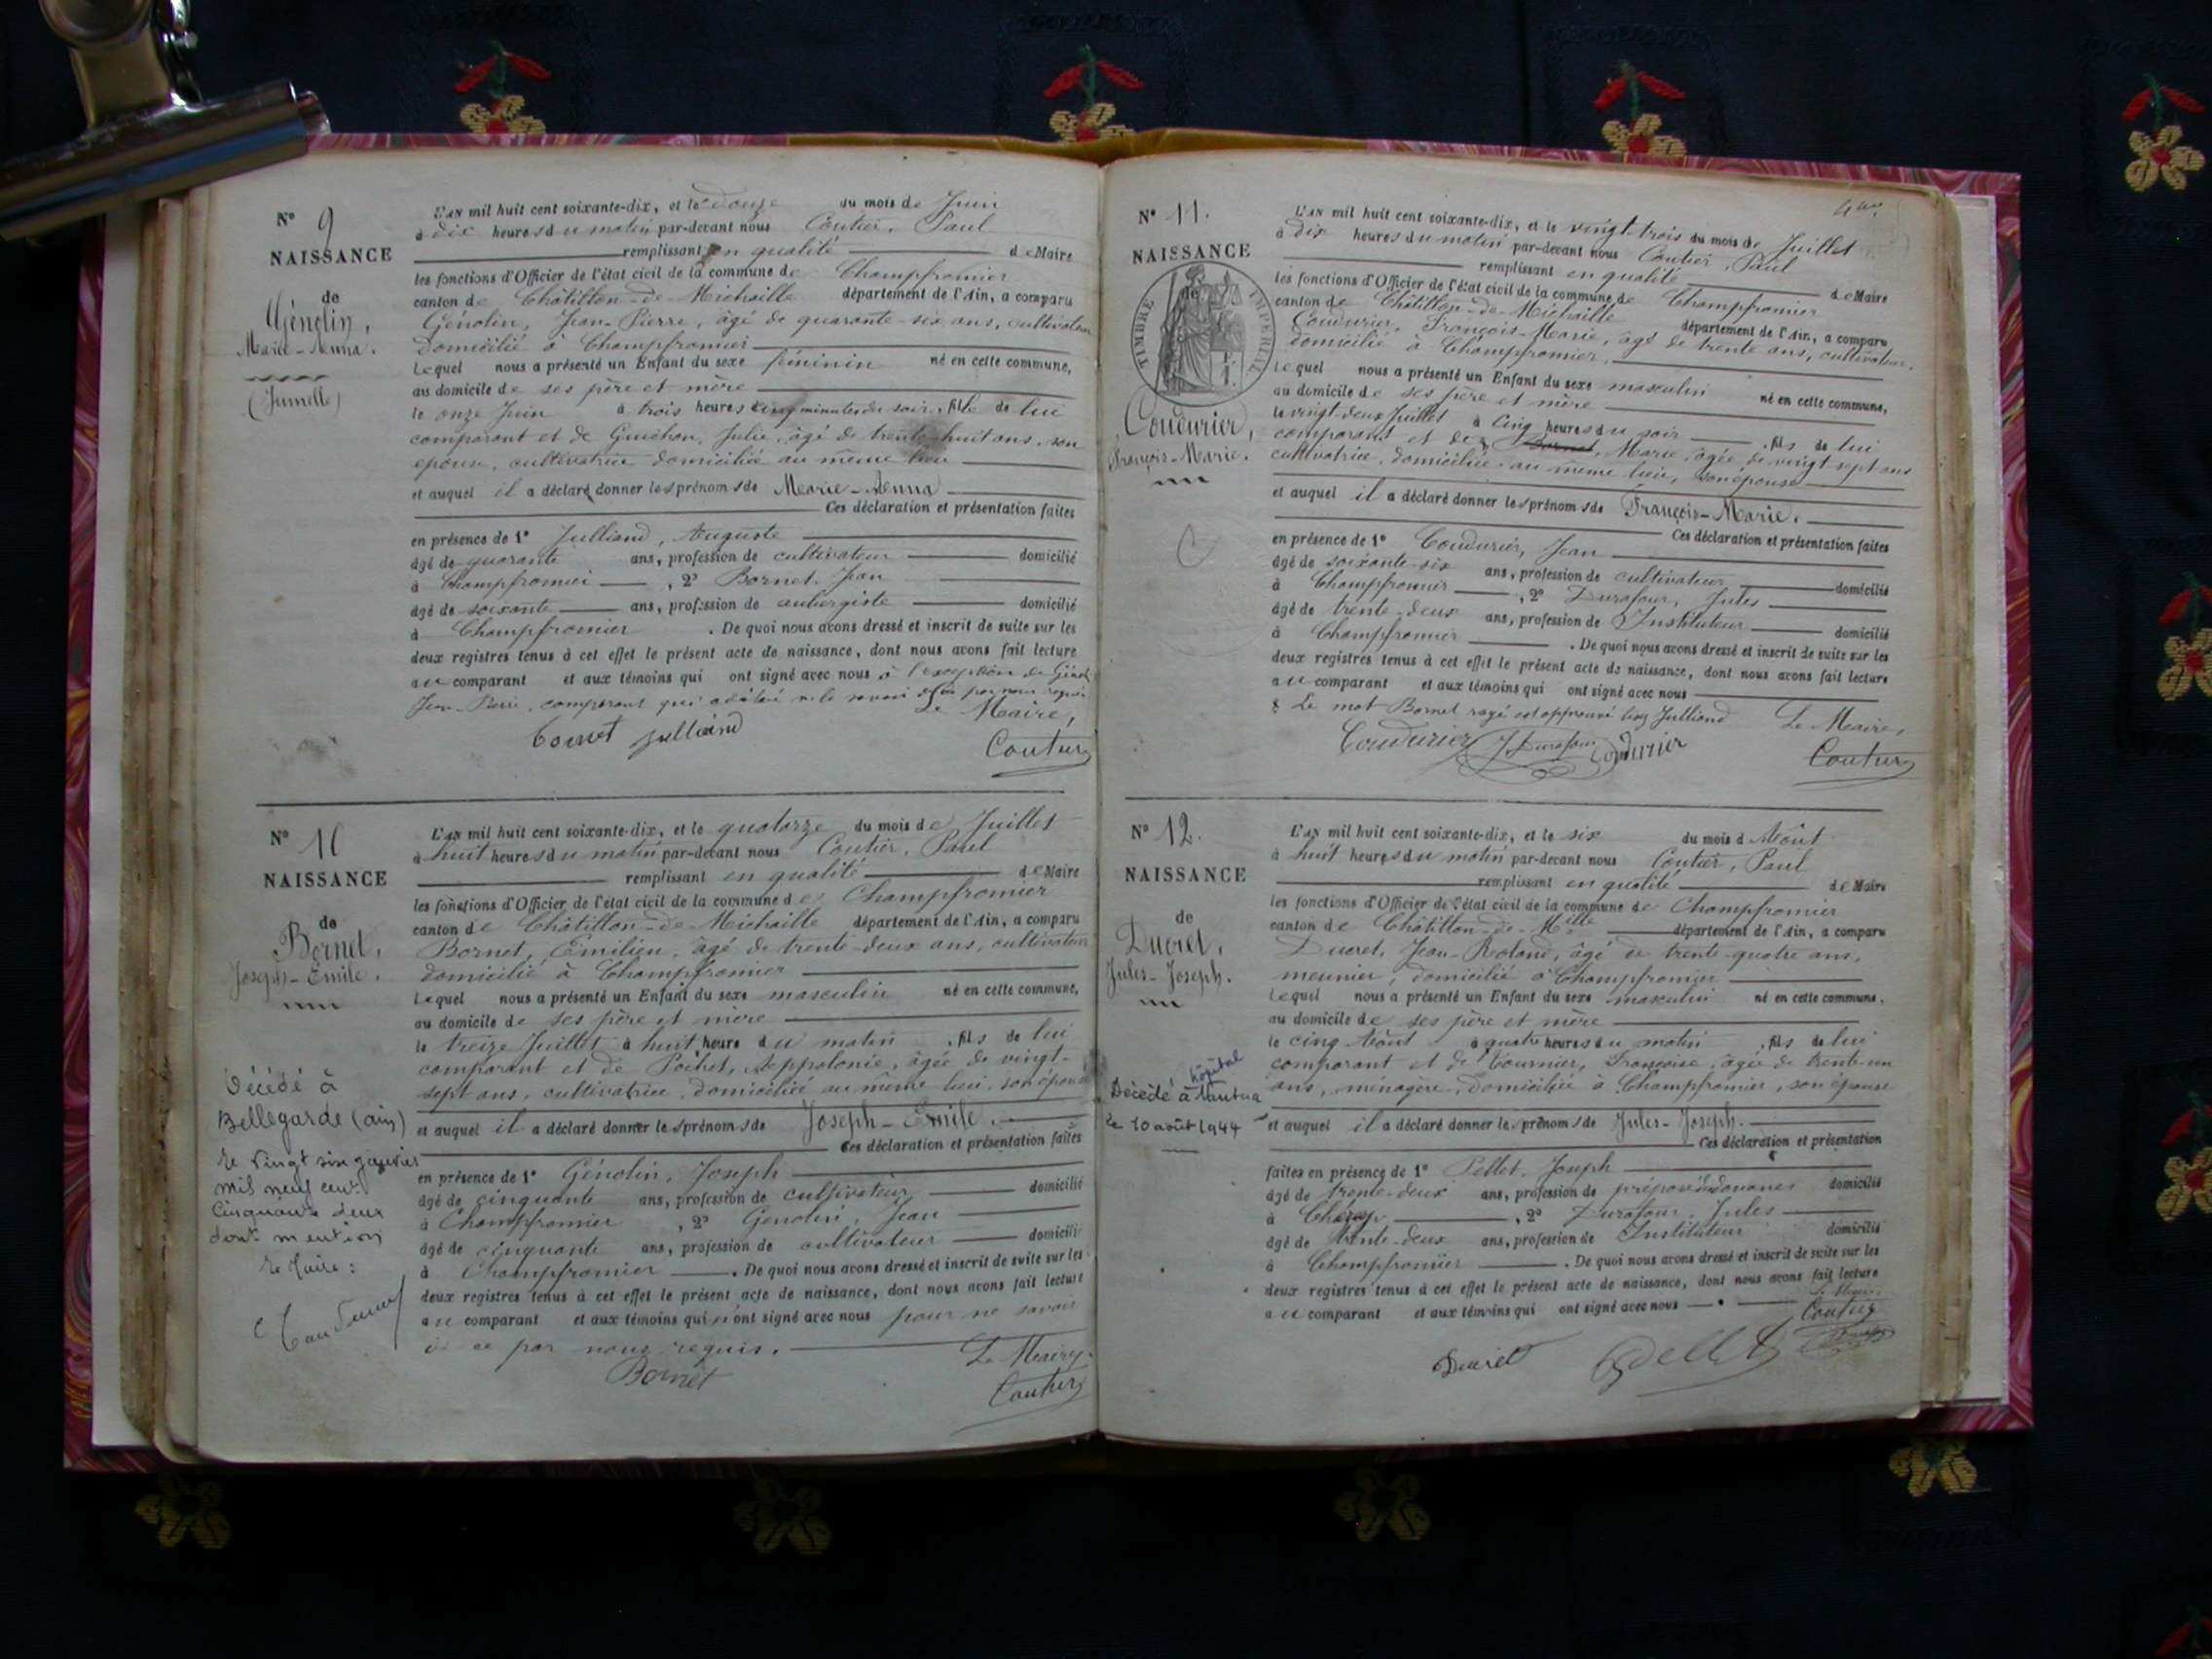 N° 9
NAISSANCE
de
Génolin,
Marie-Anna.
(Jumelle)
L'AN mil huit cent soixante-dix, et le douze du mois de Juin
à dix heures du matin par-devant nous Coutier, Paul
remplissant en qualité de Maire
les fonctions d'Officier de l'état civil de la commune de Champfromier
canton de Châtillon-de-Michaille département de l'Ain, a comparu
Génolin, Jean-Pierre, âgé de quarante-six ans, cultivateur
domicilié à Champfromier
Lequel nous a présenté un Enfant du sexe féminin né en cette commune,
au domicile de ses père et mère
le onze Juin à trois heures cinq minutes du soir, fille de lui
comparant et de Guichon, Julie, âgé de trente-huit ans, son
épouse, cultivatrice domiciliée au même lieu
et auquel il a déclaré donner les prénoms de Marie-Anna
Ces déclaration et présentation faites
en présence de 1° Julliand, Auguste
âgé de quarante ans, profession de cultivateur domicilié
à Champfromier, 2° Bornet, Jean
âgé de soixante ans, profession de aubergiste domicilié
à Champfromier. De quoi nous avons dressé et inscrit de suite sur les
deux registres tenus à cet effet le présent acte de naissance, dont nous avons fait lecture
au comparant et aux témoins qui ont signé avec nous à l'exception de
Jean-Pierre, comparant qui a déclaré ne le savoir de ce par nous requis
Le Maire,
Bornet Julliand
Coutier
N° 10
NAISSANCE
de
Bornet,
Joseph-Emile.
Décédé à
Bellegarde (ain)
le vingt six janvier
mil neuf cent
cinquante deux
dont mention
le Maire:
L'AN mil huit cent soixante-dix, et le quatorze du mois de Juillet
à huit heures du matin par-devant nous Coutier, Paul
remplissant en qualité de Maire
les fonctions d'Officier de l'état civil de la commune de Champfromier
canton de Châtillon-de-Michaille département de l'Ain, a comparu
Bornet, Emilien, âgé de trente-deux ans, cultivateur
domicilié à Champfromier
Lequel nous a présenté un Enfant du sexe masculin né en cette commune,
au domicile de ses père et mère
le treize Juillet à huit heure du matin, fils de lui
comparant et de Pochet, Appolonie, âgée de vingt-
sept ans, cultivatrice, domiciliée au même lieu, son épouse
et auquel il a déclaré donner les prénoms de Joseph-Emile.
Ces déclaration et présentation faites
en présence de 1° Génolin, Joseph
âgé de cinquante ans, profession de cultivateur domicilié
à Champfromier, 2° Génolin, Jean
âgé de cinquante ans, profession de cultivateur domicilié
à Champfromier. De quoi nous avons dressé et inscrit de suite sur les
deux registres tenus à cet effet le présent acte de naissance, dont nous avons fait lecture
au comparant et aux témoins qui n'ont signé avec nous pour ne savoir
de ce par nous requis.
Le Maire,
Bornet
Coutier
N° 11.
NAISSANCE
de
TIMBRE IMPERIAL
Coudurier,
François-Marie.
L'AN mil huit cent soixante-dix, et le vingt-trois du mois de Juillet
à dix heures du matin par-devant nous Coutier, Paul
remplissant en qualité de Maire
les fonctions d'Officier de l'état civil de la commune de Champfromier
canton de Châtillon-de-Michaille département de l'Ain, a comparu
Coudurier, François-Marie, âgé de trente ans, cultivateur,
domicilié à Champfromier,
Lequel nous a présenté un Enfant du sexe masculin né en cette commune,
au domicile de ses père et mère
le vingt-deux Juillet à cinq heures du soir, fils de lui
comparant et de Bornet, Marie, âgée de vingt-sept ans
cultivatrice, domiciliée au même lieu, son épouse
et auquel il a déclaré donner les prénoms de François-Marie.
Ces déclaration et présentation faites
en présence de 1° Coudurier, Jean
âgé de soixante-six ans, profession de cultivateur domicilié
à Champfromier, 2° Durafour, Jules
âgé de trente-deux ans, profession de Instituteur domicilié
à Champfromier. De quoi nous avons dressé et inscrit de suite sur les
deux registres tenus à cet effet le présent acte de naissance, dont nous avons fait lecture
au comparant et aux témoins qui ont signé avec nous
Le mot Bornet rayé est approuvé lisez Julliand Le Maire,
Coudurier J. Durafour Coudurier
Coutier
N° 12.
NAISSANCE
de
Ducret,
Jules-Joseph.
hôpital
Décédé à Nantua
le 10 août 1944
L'AN mil huit cent soixante-dix, et le six du mois d'Août
à huit heures du matin par-devant nous Coutier, Paul
remplissant en qualité de Maire
les fonctions d'Officier de l'état civil de la commune de Champfromier
canton de Châtillon-de-Mlle département de l'Ain, a comparu
Ducret, Jean-Roland, âgé de trente-quatre ans,
meunier, domicilié à Champfromier
Lequel nous a présenté un Enfant du sexe masculin né en cette commune,
au domicile de ses père et mère
le cinq Août à quatre heures du matin, fils de lui
comparant et de Tournier, Françoise, âgée de trente-un
ans, ménagère, domiciliée à Champfromier, son épouse
et auquel il a déclaré donner les prénoms de Jules-Joseph.
Ces déclaration et présentation
faites en présence de 1° Pellet, Joseph
âgé de trente-deux ans, profession de préposé des douanes domicilié
à Champ, 2° Durafour, Jules
âgé de trente-deux ans, profession de Instituteur domicilié
à Champfromier. De quoi nous avons dressé et inscrit de suite sur les
deux registres tenus à cet effet le présent acte de naissance, dont nous avons fait lecture
au comparant et aux témoins qui ont signé avec nous
Le Maire,
Coutier
Ducret Pellet